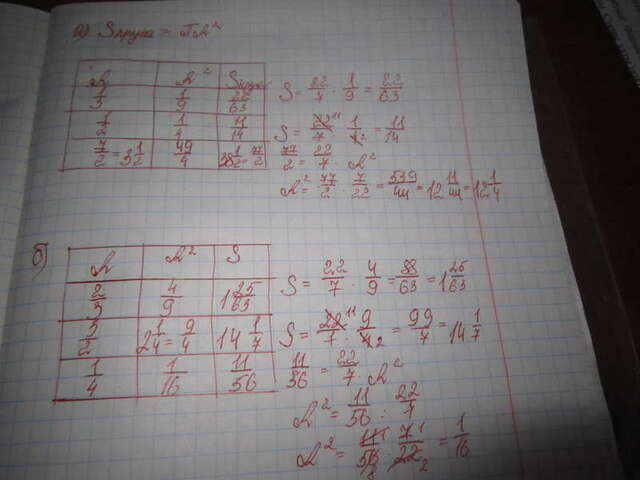 а) Sкруга = πr²
r | r² | Sкруга
1/3 | 1/9 | 22/63
1/2 | 1/4 | 11/14
7/2 = 3 1/2 | 49/4 | 38 1/2 = 77/2
S = 22/7 · 1/9 = 22/63
S = 22 11/7 · 1/4 2 = 11/14
77/2 = 22/7 · r²
r² = 77/2 · 7/22 = 539/44 = 12 11/44 = 12 1/4
б)
r | r² | S
2/3 | 4/9 | 1 25/63
3/2 | 2 1/4 = 9/4 | 14 1/7
1/4 | 1/16 | 11/56
S = 22/7 · 4/9 = 88/63 = 1 25/63
S = 22 11/7 · 9/4 2 = 99/7 = 14 1/7
11/56 = 22/7 · r²
r² = 11/56 : 22/7
r² = 11 1/56 8 · 7 1/22 2 = 1/16